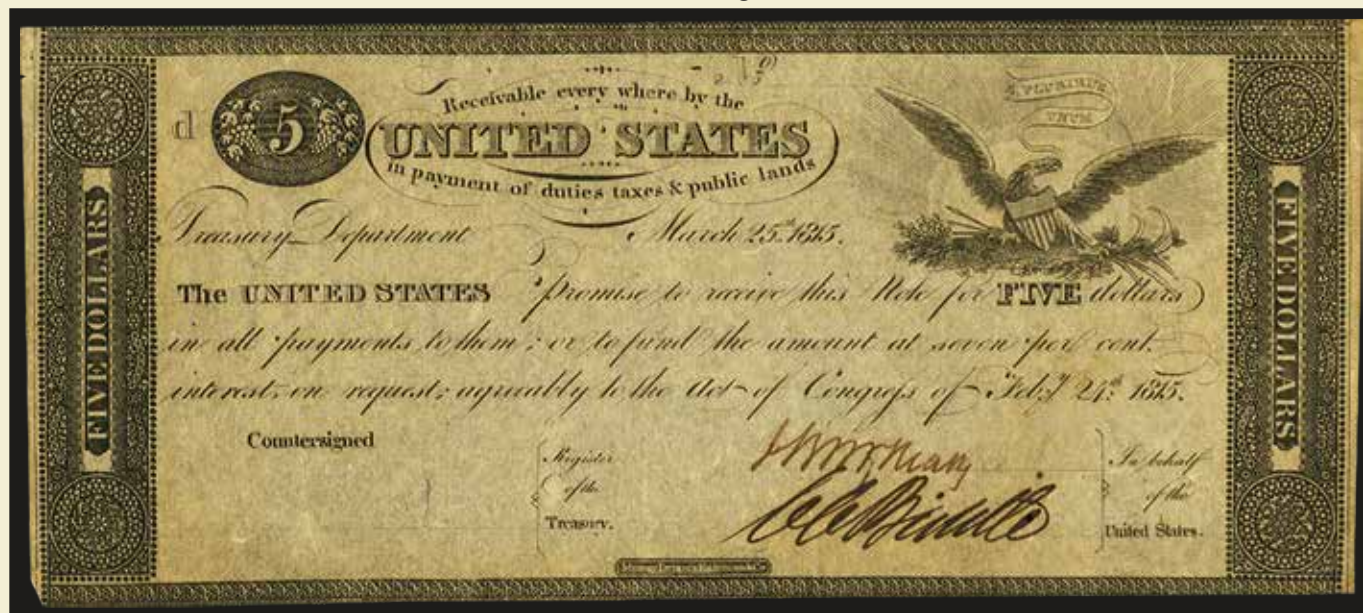 Receivable every where by the
d 5 UNITED STATES
in payment of duties taxes & public lands
E PLURIBUS
UNUM
Treasury Department March 25th 1815.
The UNITED STATES Promise to receive this Note for FIVE dollars
in all payments to them; or to fund the amount at seven per cent.
interest, on request; agreeably to the Act of Congress of Feby. 24th 1815.
Countersigned
Register
of the
Treasury.
C C Biddle
In behalf
of the
United States.
FIVE DOLLARS
FIVE DOLLARS